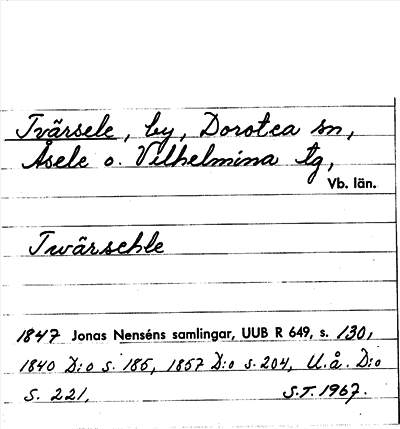 Tvärsele, by, Dorotea sn,
Åsele o. Vilhelmina tg,
Vb. län.
Twärsehle
1847 Jonas Nenséns samlingar, UUB R 649, s. 130,
1840 D:o s. 185, 1857 D:o s. 204, U.å. D:o
s. 221, S.T. 1967.